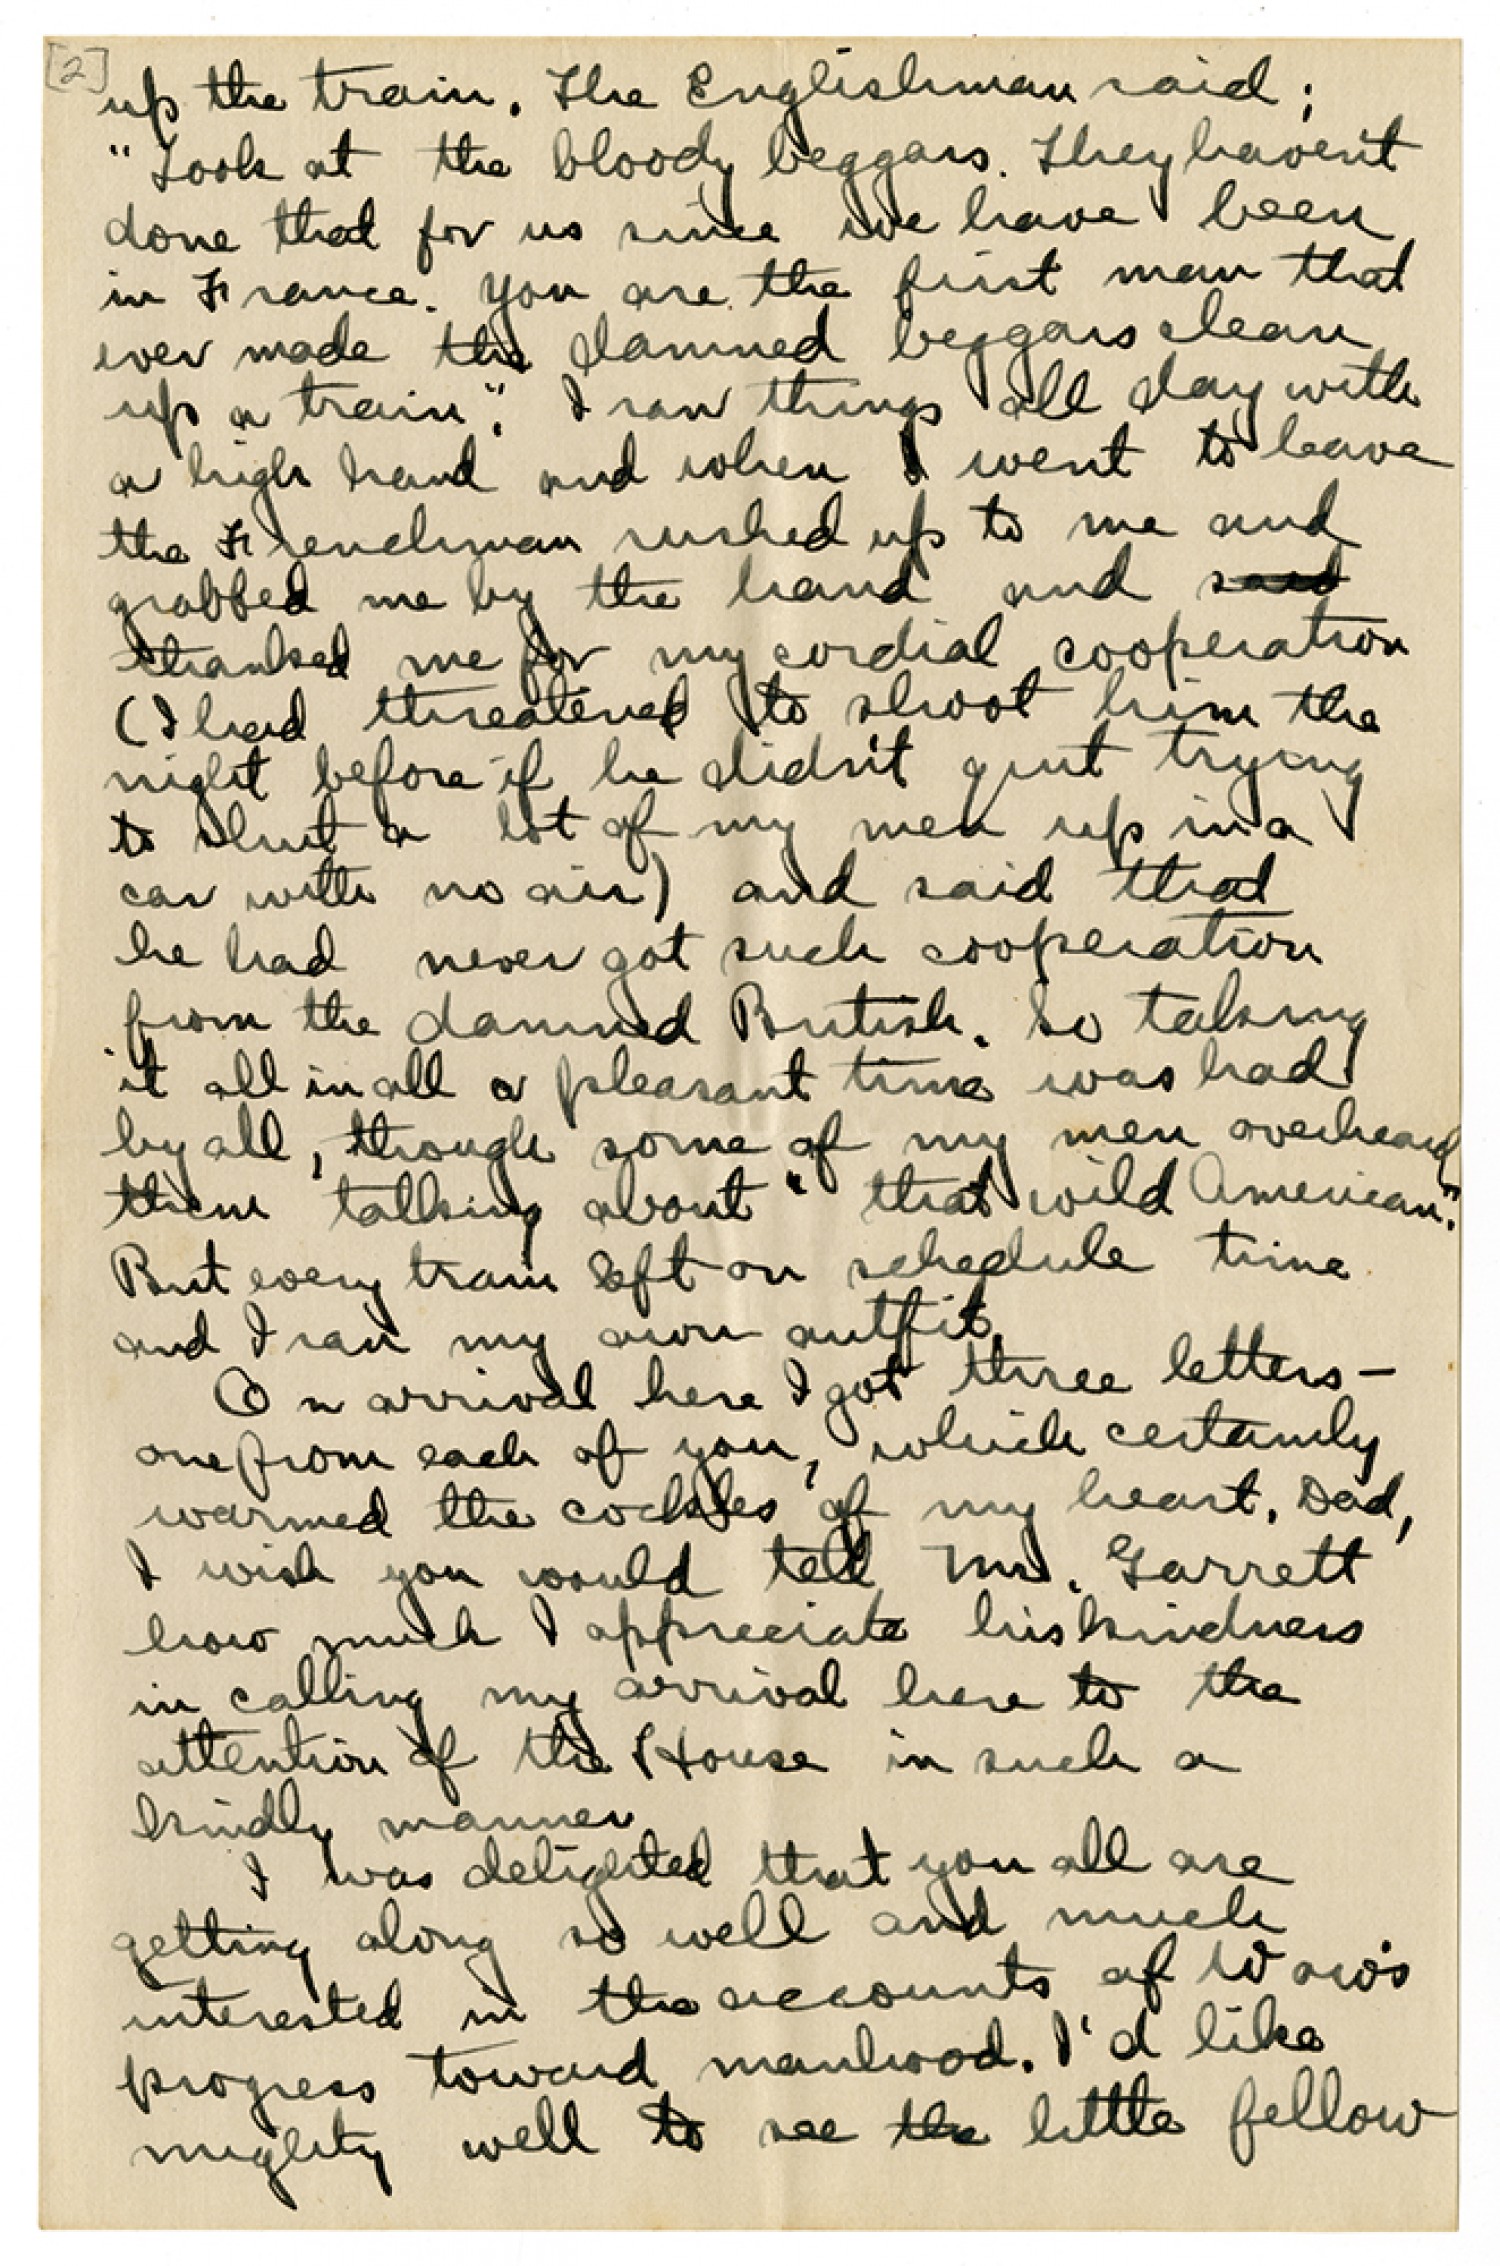 [2]
up the train. The Englishman said;
"Look at the bloody beggars. They haven't
done that for us since we have been
in France. You are the first man that
ever made the damned beggars clean
up a train". I ran things all day with
a high hand and when I went to leave
the Frenchman rushed up to me and
grabbed me by the hand and said
thanked me for my cordial cooperation
(I had threatened to shoot him the
night before if he didn't quit trying
to shut a lot of my men up in a
car with no air) and said that
he had never got such cooperation
from the damned British. So taking
it all in all a pleasant time was had
by all, though some of my men overheard
them talking about "that wild American".
But every train left on schedule time
and I ran my own outfit.
On arrival here I got three letters -
one from each of you, which certainly
warmed the cockles of my heart. Dad,
I wish you would tell Mr. Garrett
how much I appreciate his kindness
in calling my arrival here to the
attention of the House in such a
kindly manner
I was delighted that you all are
getting along so well and much
interested in the accounts of Waw's
progress toward manhood. I'd like
mighty well to see the little fellow